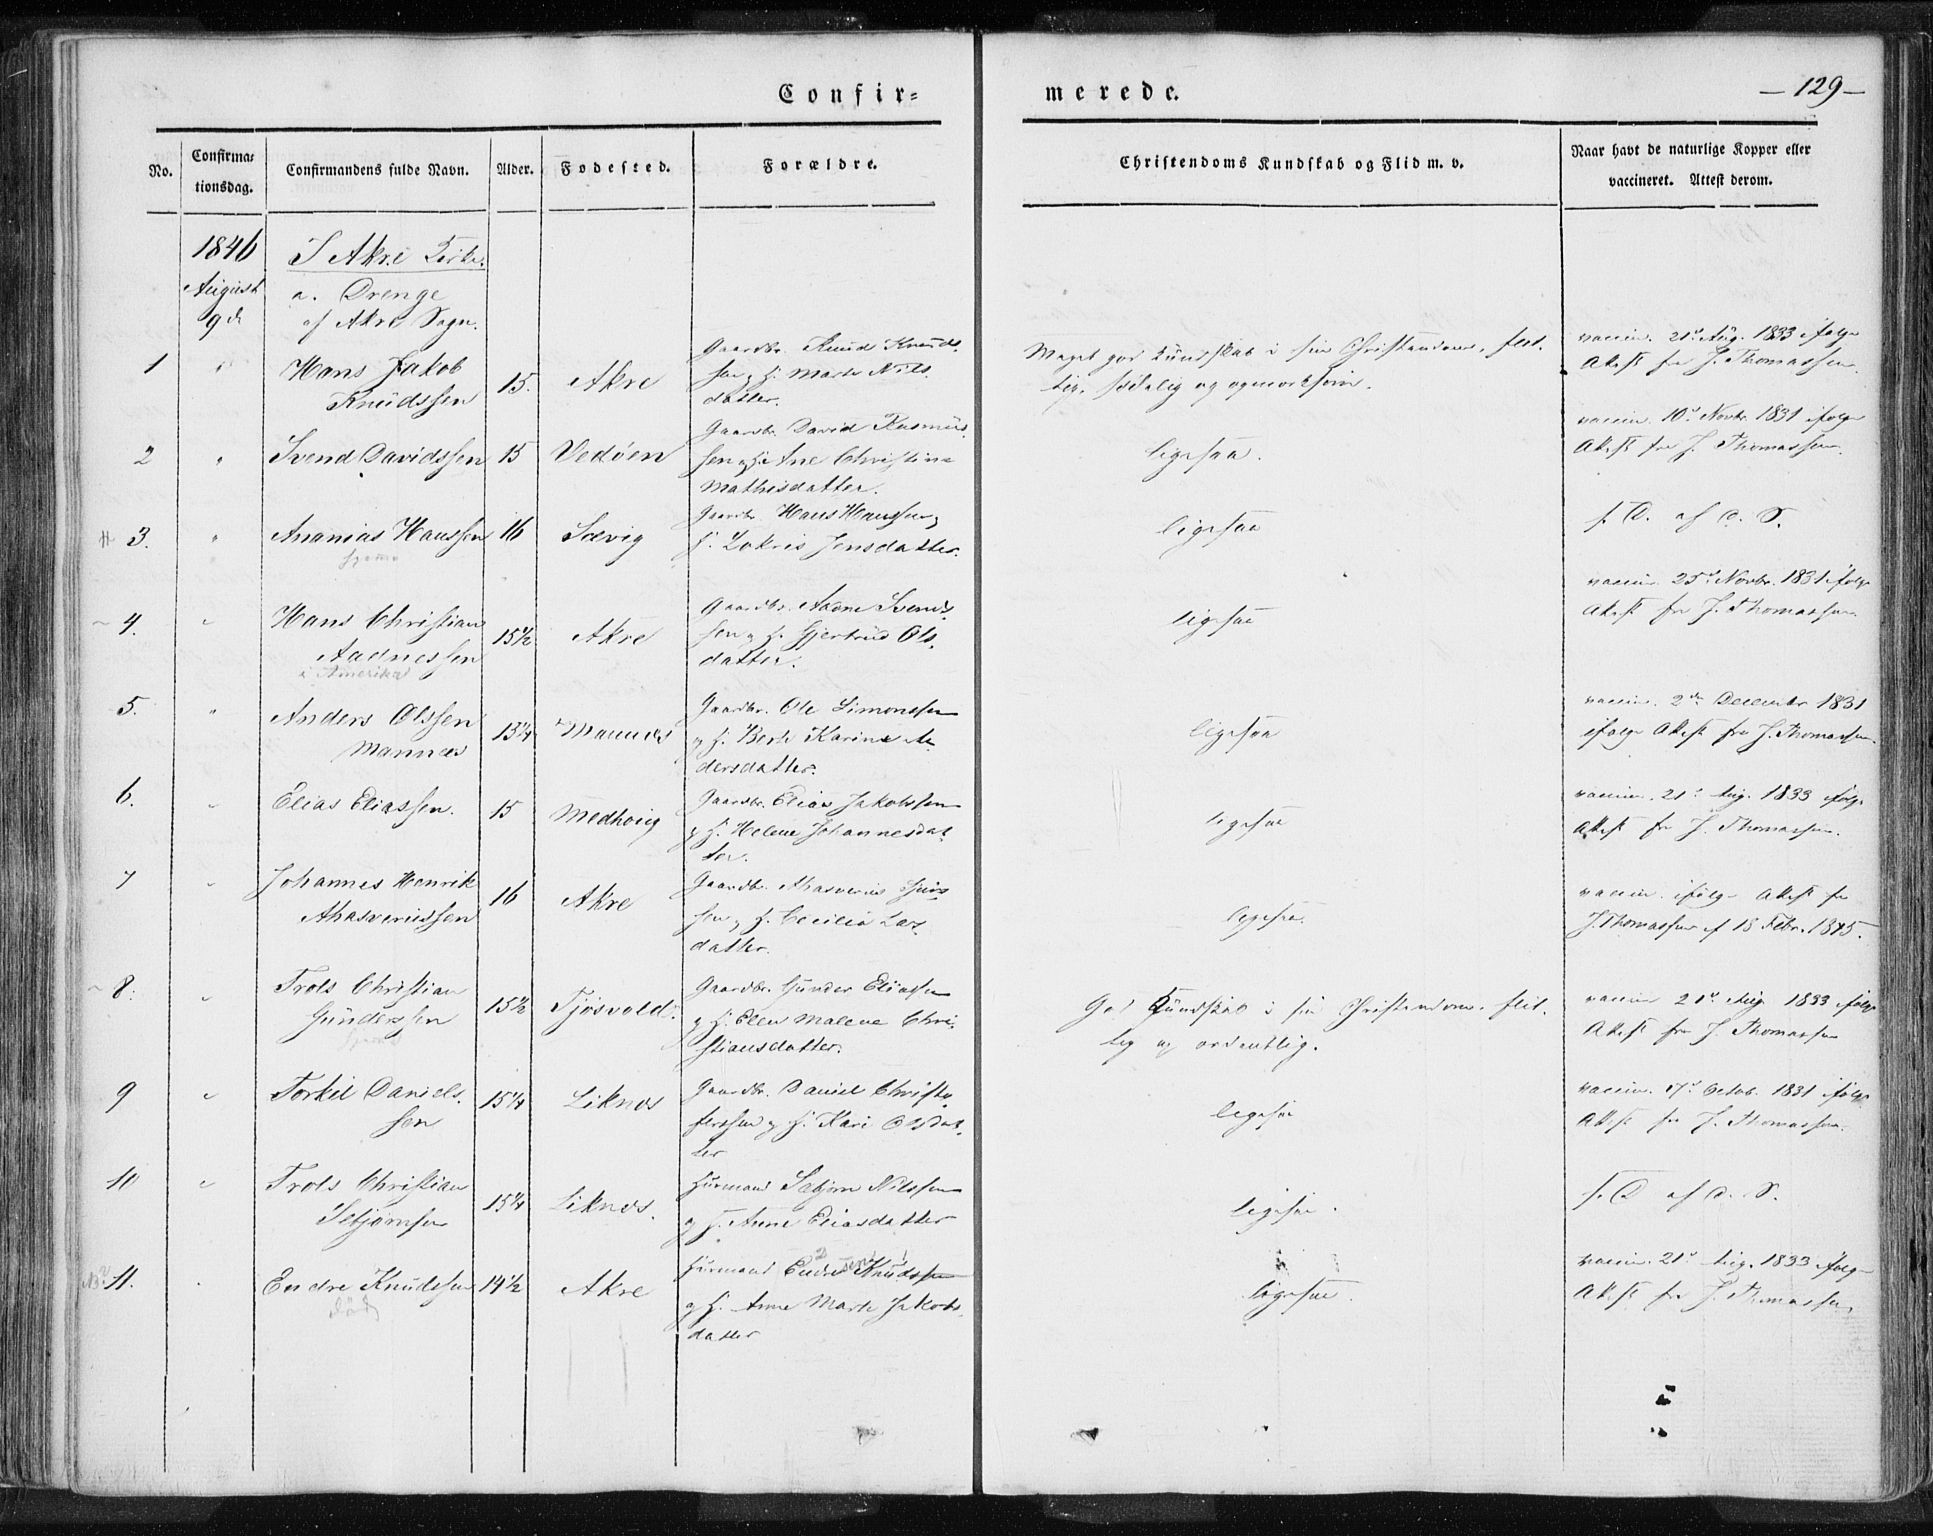 Confir=
merede.
— 129 —
No.
Confirma=
tionsdag.
Confirmandens fulde Navn.
Alder.
Fødested.
Forældre.
Christendoms Kundskab og Flid m. v.
Naar havt de naturlige Kopper eller
vaccineret. Attest derom.
1846
I Akre Kirke.
August
9d
a. Drenge
af Akre Sogn.
1 " Hans Jakob
Knudssen
15. Akre
Gaardbr. Knud Knuds.
sen og H. Marte Nils.
datter.
Meget god Kundskab i sin Christendom, flit.
tig, sædelig og opmærksom.
vaccin. 21d Aug. 1833 ifølge
Attest fra J. Thomassen.
2 " Svend Davidssen 15 Vedøen
Gaardbr. David Rasmus.
sen og H. Ane Christine
Mathisdatter.
ligesaa.
vaccin. 10d Novbr. 1831 ifølge
Attest fra J. Thomassen.
3. " Ananias Hanssen 16 Sævig
hjemme
Gaardbr. Hans Hanssen og
H. Lokris Jensdatter.
ligesaa
s. D. af d. S.
4. " Hans Christian
Aadnessen
i Amerika
15½ Akre
Gaardbr. Aadne Svends.
sen og H. Gjertrud Ols.
datter.
ligesaa
vaccin. 25d Novbr. 1831 ifølge
Attest fra J. Thomassen
5. " Anders Olssen
Mannæs
15¼ Mannæs
Gaardbr. Ole Simonssen
og H. Berte Karine An
dersdatter.
ligesaa
vaccin. 2den December 1831
ifølge Attest fra J. Thomassen.
6. " Elias Eliassen. 15 Medhoug
Gaardbr. Elias Jakobssen
og H. Helene Johannesdat
ter.
ligesaa
vaccin. 21d Aug. 1833 ifølge
Attest fra J. Thomassen.
7 " Johannes Henrik
Ahasverussen
16 Akre
Gaardbr. Ahasverus
sen og H. Cecilia Lars
datter.
ligesaa.
vaccin. ifølge Attest fra
J. Thomassen af 18 Febr. 1845.
8. " Trols Christian
Gunderssen
hjemme
15½ Tjøsvold.
Gaardbr. Gunder Eliassen
og H. Elen Malene Chri.
stiansdatter.
God Kundskab i sin Christendom, flit.
tig og ordentlig.
vaccin 21d Aug. 1833 ifølge
Attest fra J. Thomassen
9 " Torkil Daniels.
sen
15¼ Liknæs
Gaardbr. Daniel Christo
ferssen og H. Kari Olsdat.
ter
ligesaa
vaccin. 17d Octob. 1831 ifølge
Attest fra J. Thomassen.
10 " Trols Christian
Sebjørnsen
15¼ Liknæs.
Huusmand Sebjørn Nilssen
og H. Anne Eliasdatter
ligesaa.
s. D. af d. S.
11. " Endre Knudssen 14½ Akre
død
Huusmand Endre Knudssen
og H. Anne Marte Jakobs.
datter
ligesaa.
vaccin. 21d Aug. 1833 ifølge
Attest fra J. Thomassen.